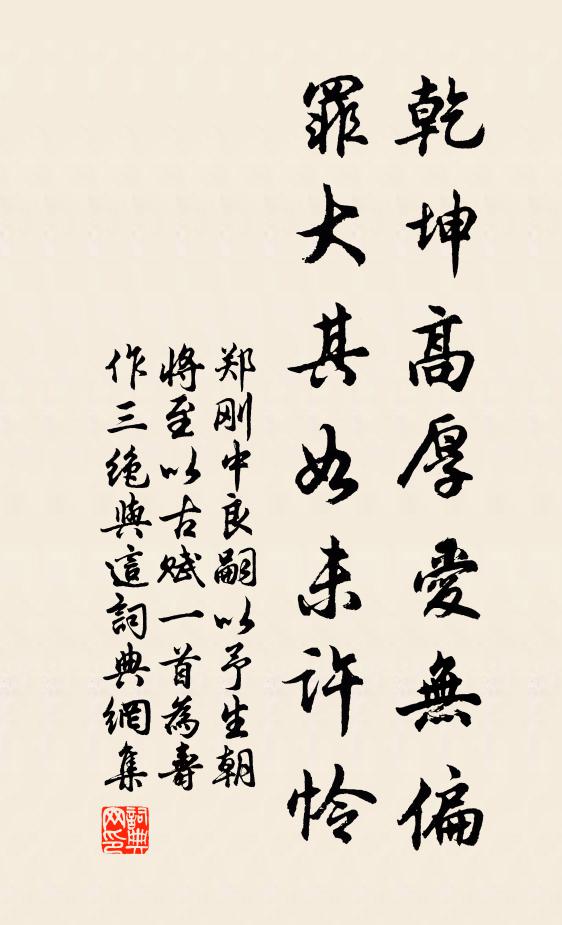 乾坤高厚愛無偏
罪大其如未許怜
郑刚中良嗣以予生朝
将至以古赋一首為壽
作三绝與這詞典網集
詞典网印